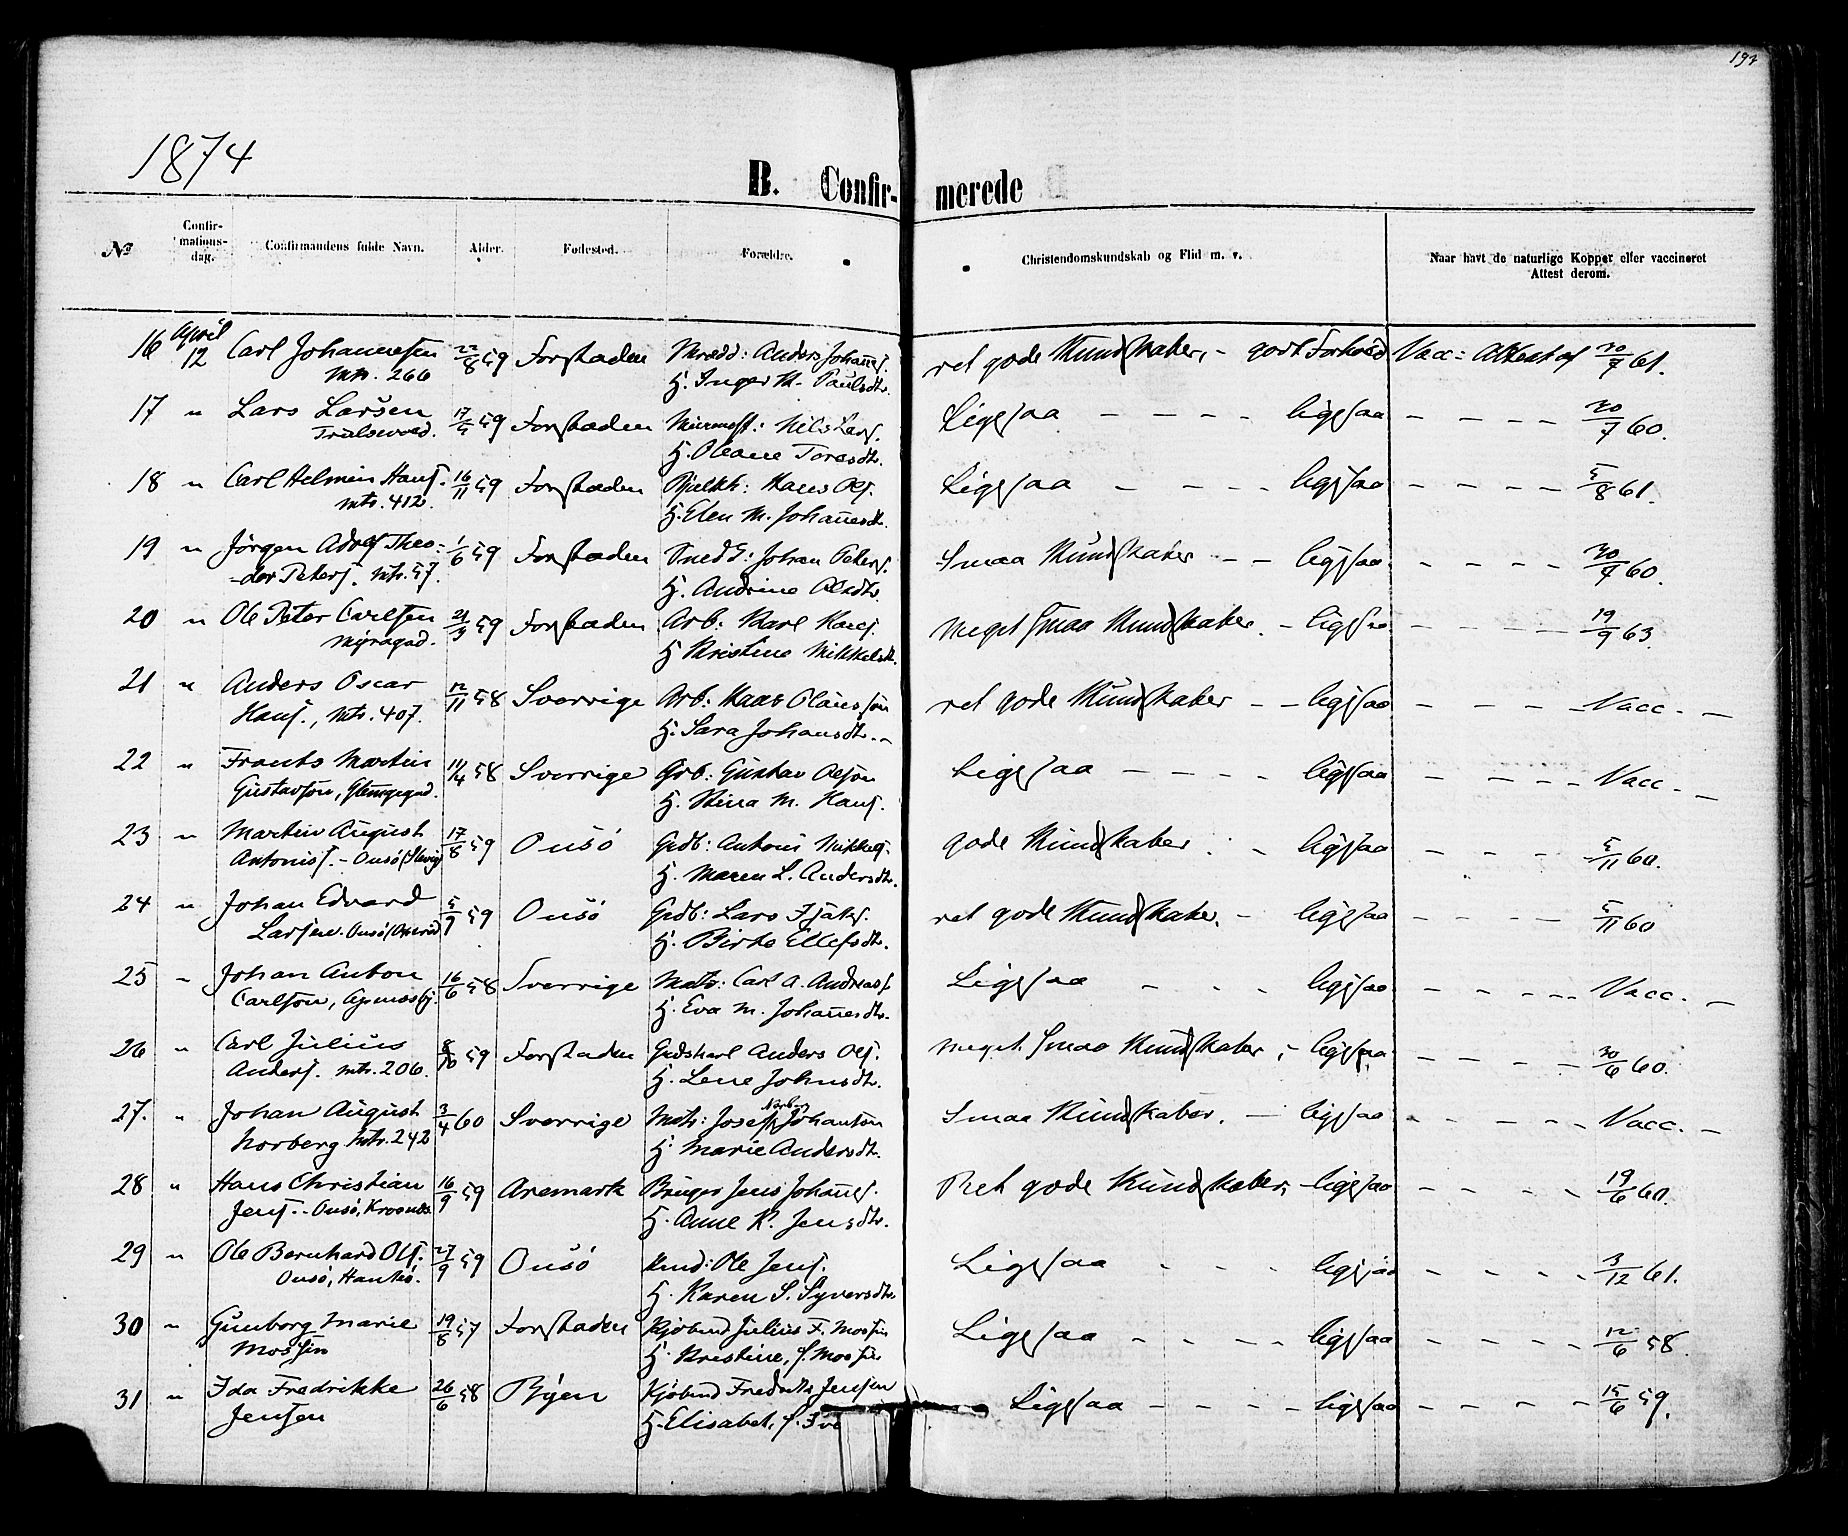 192
1874
B. Confir- merede
No
Confir-
mations-
dag.
Confirmandens fulde Navn.
Alder.
Fødested.
Forældre.
Christendomskundskab og Flid m. v.
Naar havt de naturlige Kopper eller vaccineret
Attest derom.
16 April 12 Carl Johannesen 22/8 59 Forstaden Skrædd: Anders Johannes. ret gode Kundskaber, - godt Forhold Vacc: Attest af 20/7 61.
Mtr. 266 H. Inger M. Paulsdtr.
17 " Lars Larsen 17/5 59 Forstaden Nils Lars. Ligesaa - - - - ligesaa - - - - 20/7 60.
Trulsevoed. H. Oleane Toresdtr.
18 " Carl Helmin Hans. 16/11 59 Forstaden Hans Ols. Ligesaa - - - - ligesaa - - - - 5/8 61.
Mtr. 412. H. Elen M. Johannesdtr.
19 " Jörgen Adolf Theo- 1/6 59 Forstaden Smed: Johan Peters. Smaa Kundskaber - - ligesaa - - - - 60.
-dor Peters. Mtr. 57. H. Andrine Olsdtr.
20 " Ole Peter Carlsen 21/3 59 Forstaden Arb: Karl Hans. Meget smaa Kundskaber. - ligesaa - - - - 19/9 63.
Myragad. H. Kristine Mikkelsdtr.
21 " Anders Oscar 12/11 58 Sverrige Arb: Hans Olausson ret gode Kundskaber - - ligesaa - - - - Vacc. -
Hans., Mtr. 407. H. Sara Johansdtr. -
22 " Frants Martin 11/4 58 Sverrige Arb: Gustav Olsson Ligesaa - - - - ligesaa - - - - Vacc. -
Gustavson, Glemgegad. H. Stina M. Hans.
23 " Martin August 17/8 59 Onsö Grdb: Antoni Mikkels. gode Kundskaber. - ligesaa - - - 5/11 60.
Antonis. - Onsö H. Maren L. Andersdtr.
24 " Johan Edvard 5/9 59 Onsö Grdb: Lars ret gode Kundskaber. - ligesaa - - - - 5/11 60
Larsen. Onsö H. Birte Ellefsdtr.
25 " Johan Anton 16/6 58 Sverrige Matr: Carl A. Andreass. Ligesaa - - - ligesaa - - - - Vacc. -
Carlson, H. Eva M. Johannesdtr.
26 " Carl Julius 8/10 59 Forstaden Grdskarl Anders Ols. meget smaa Kundskaber, - ligesaa - - - - 20/6 60.
Anders. Mtr. 206. H. Lene Johnsdtr.
27. " Johan August 3/4 60 Sverrige Matr: Josef Norberg Johanson Smaa Kundskaber. - ligesaa - - - - Vacc. -
Norberg Mtr. 242 H. Marie Andersdtr.
28 " Hans Christian 16/9 59 Aremark Bruger Jens Johannes. Ret gode Kundskaber, - ligesaa - - - - 19/6 60.
Jens. - Onsö, H. Anne K. Jensdtr.
29 " Ole Bernhard Ols. 27/9 59 Onsö Ole Jens. Ligesaa - - - ligesaa - - - - 3/12 61.
Onsö, Hankö. H. Karen S. Syversdtr.
30 " Gunborg Marie 19/8 57 Forstaden Kjöbmd Julius F. Mossin Ligesaa - - - - ligesaa - - - - 12/6 58.
Mossin H. Kristine, f. Mossin
31 " Ida Fredrikke 26/6 58 Byen Kjöbmd Fredrik Jensen Ligesaa - - - - ligesaa - - - - 15/6 59.
Jensen H. Elisabet, f.